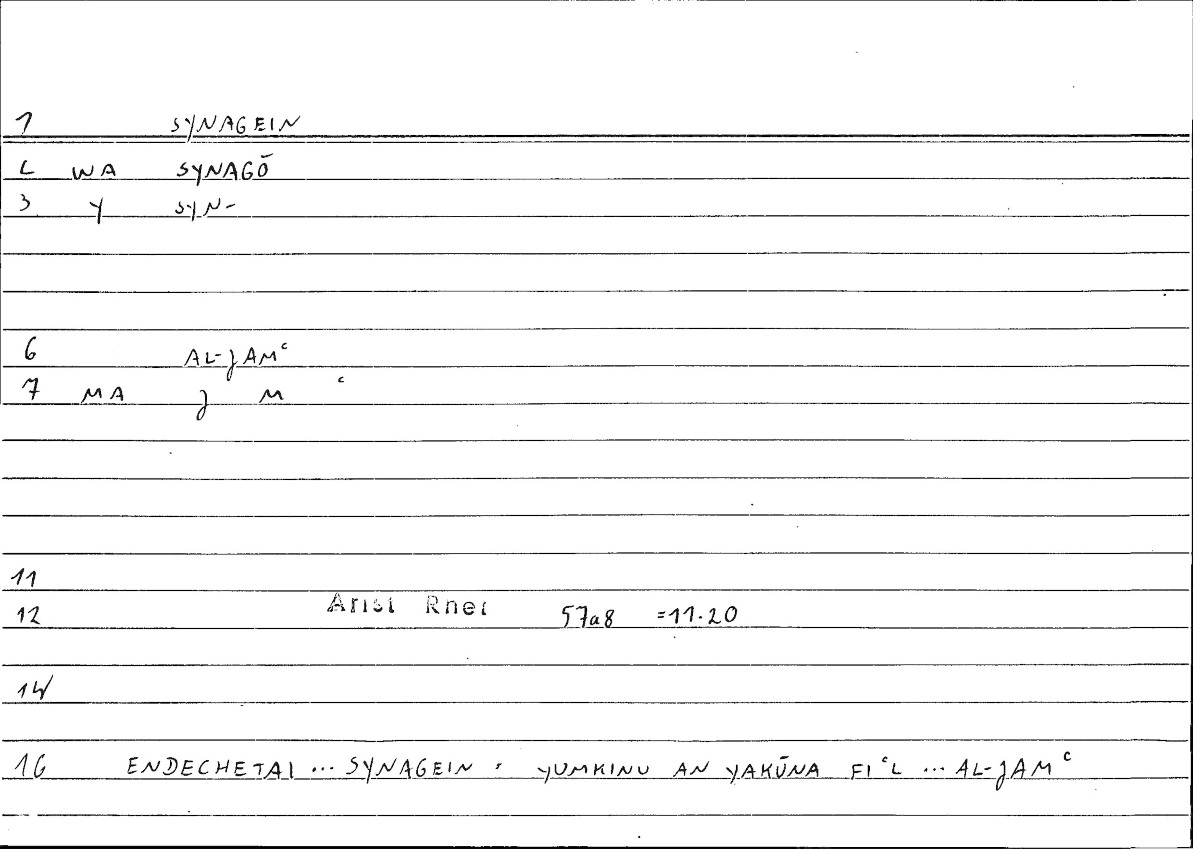 1 SYNAGEIN
2 WA SYNAGŌ
3 Y SYN-
6 AL-JAMᶜ
7 MA J M ᶜ
11
12 Arist Rhet 57a8 =11.20
14
16 ENDECHETAI ... SYNAGEIN = YUMKINU AN YAKŪNA FIᶜL ... AL-JAMᶜ